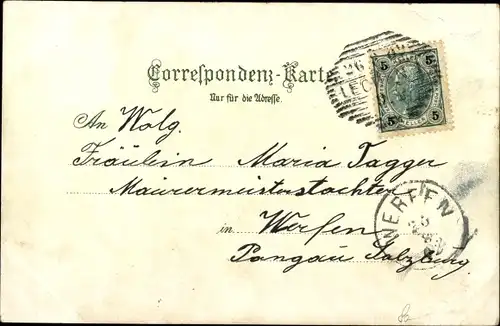 Correspondenz-Karte
Nur für die Adresse.
5 5
5 5
An Wolg.
Fräulein Maria Tagger
Maurermeisterstochter
in Werfen
Pongau Salzburg
WERFEN